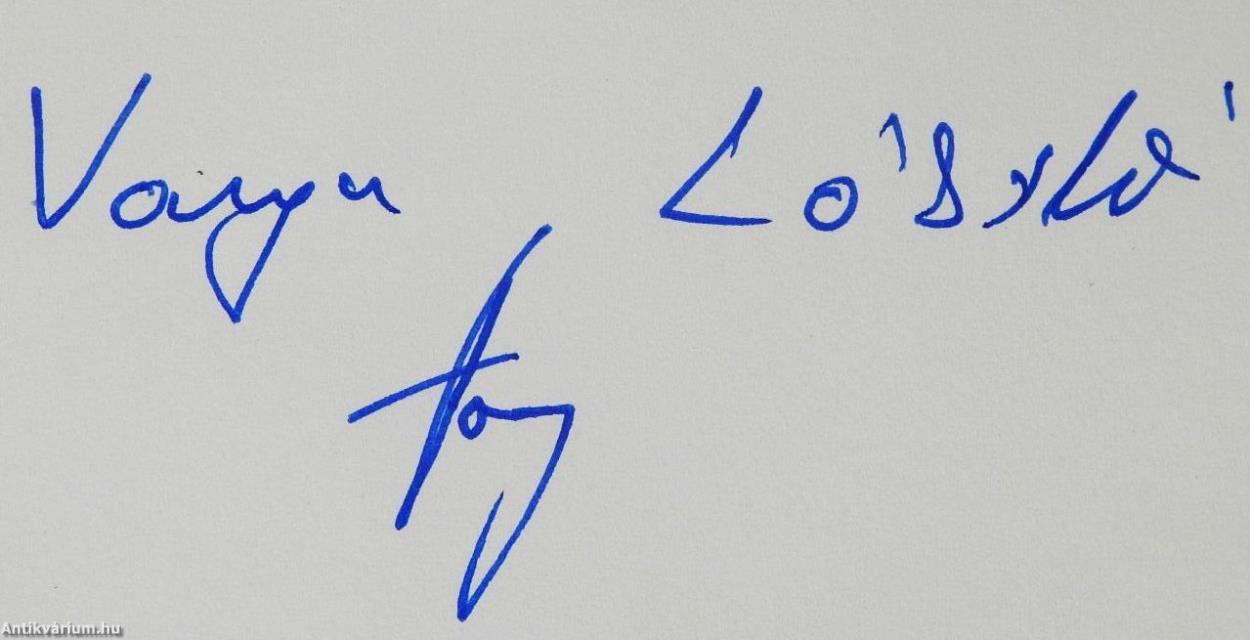 Varga László
Antikvárium.hu